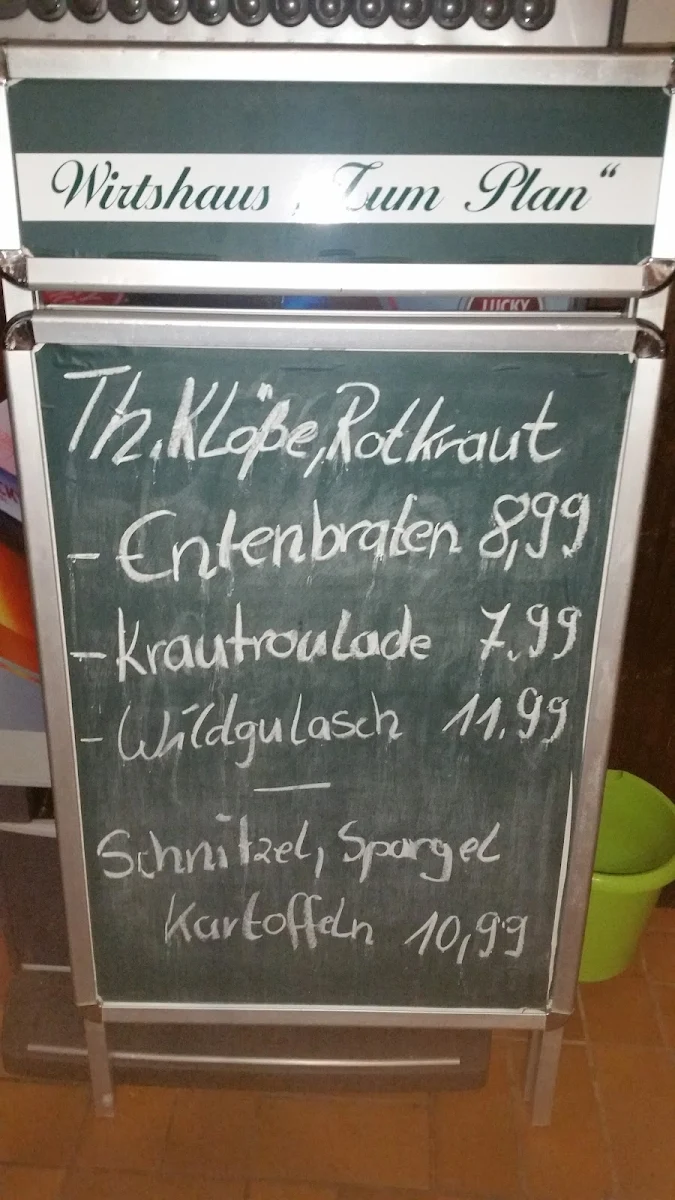 Wirtshaus „Zum Plan“
LUCKY
Th. Klöße, Rotkraut
- Entenbraten 8,99
- Krautroulade 7.99
- Wildgulasch 11.99
Schnitzel, Spargel
Kartoffeln 10,99